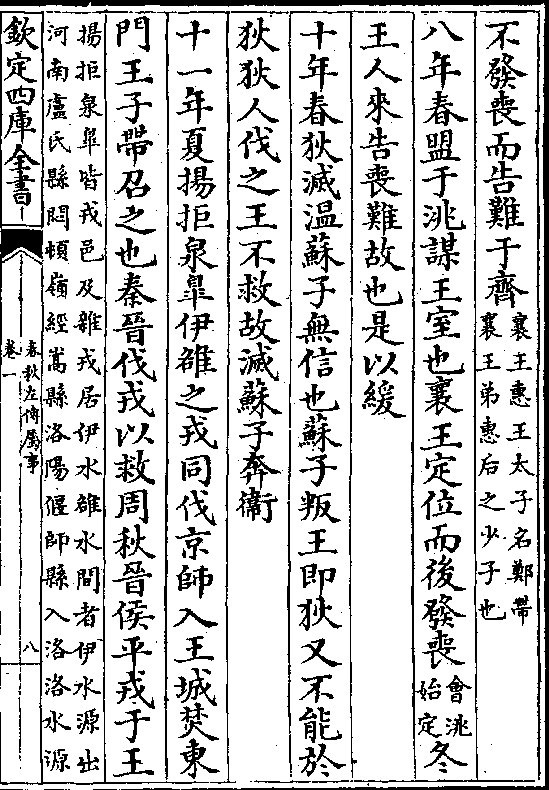 不發喪而告難于齊襄王惠王太子名鄭帶
襄王弟惠后之少子也
八年春盟于洮謀王室也襄王定位而後發喪會洮
始定冬
王人來告喪難故也是以緩
十年春狄滅溫蘇子無信也蘇子叛王即狄又不能於
狄狄人伐之王不救故滅蘇子奔衞
十一年夏揚拒泉臯伊雒之戎同伐京師入王城焚東
門王子帶召之也秦晉伐戎以救周秋晉侯平戎于王
揚拒泉臯皆戎邑及雜戎居伊水雒水間者伊水源出
河南盧氏縣悶頓嶺經嵩縣洛陽偃師縣入洛洛水源
欽定四庫全書
春秋左傳屬事
卷一
八